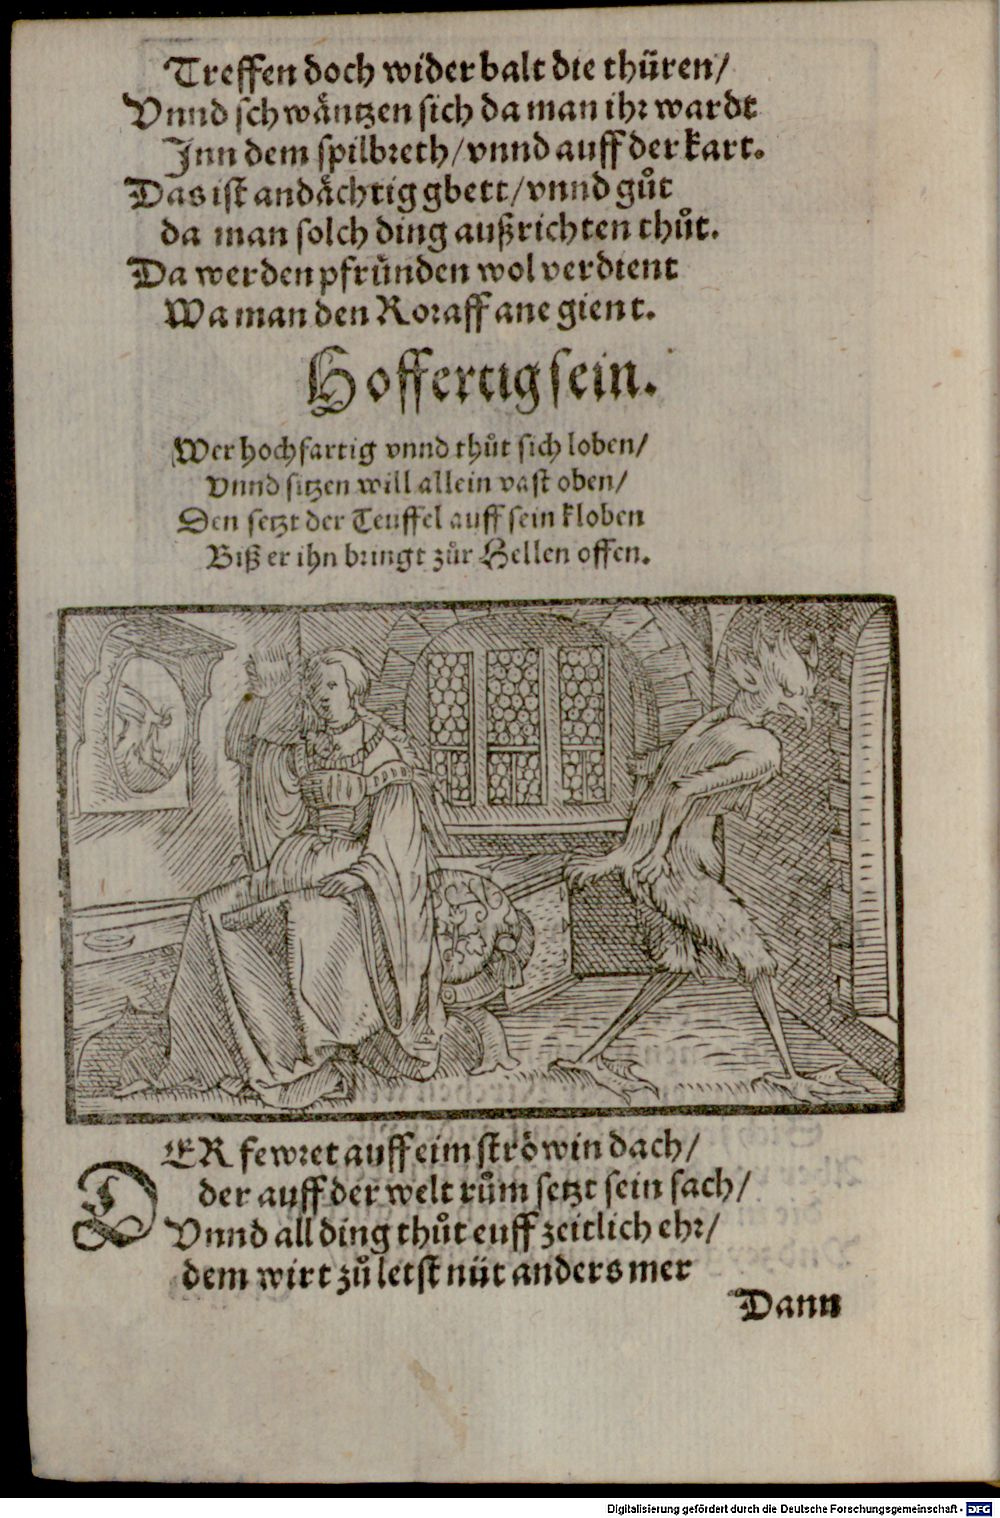 Treffen doch wider balt die thüren/
Vnnd schwäntzen sich da man ihr wardt
Inn dem spilbreth/vnnd auff der kart.
Das ist andächtig gbett/vnnd gůt
da man solch ding außrichten thůt.
Da werden pfrůnden wol verdient
Wa man den Roraff ane gient.
Hoffertig sein.
Wer hochfartig vnnd thůt sich loben/
Vnnd sitzen will allein vast oben/
Den setzt der Teuffel auff sein kloben
Biß er ihn bringt zůr Hellen offen.
DER fewret auff eim ströwin dach/
der auff der welt rům setzt sein sach/
Vnnd all ding thůt euff zeitlich ehr/
dem wirt zů letst nüt anders mer
Dann
Digitalisierung gefördert durch die Deutsche Forschungsgemeinschaft - DFG